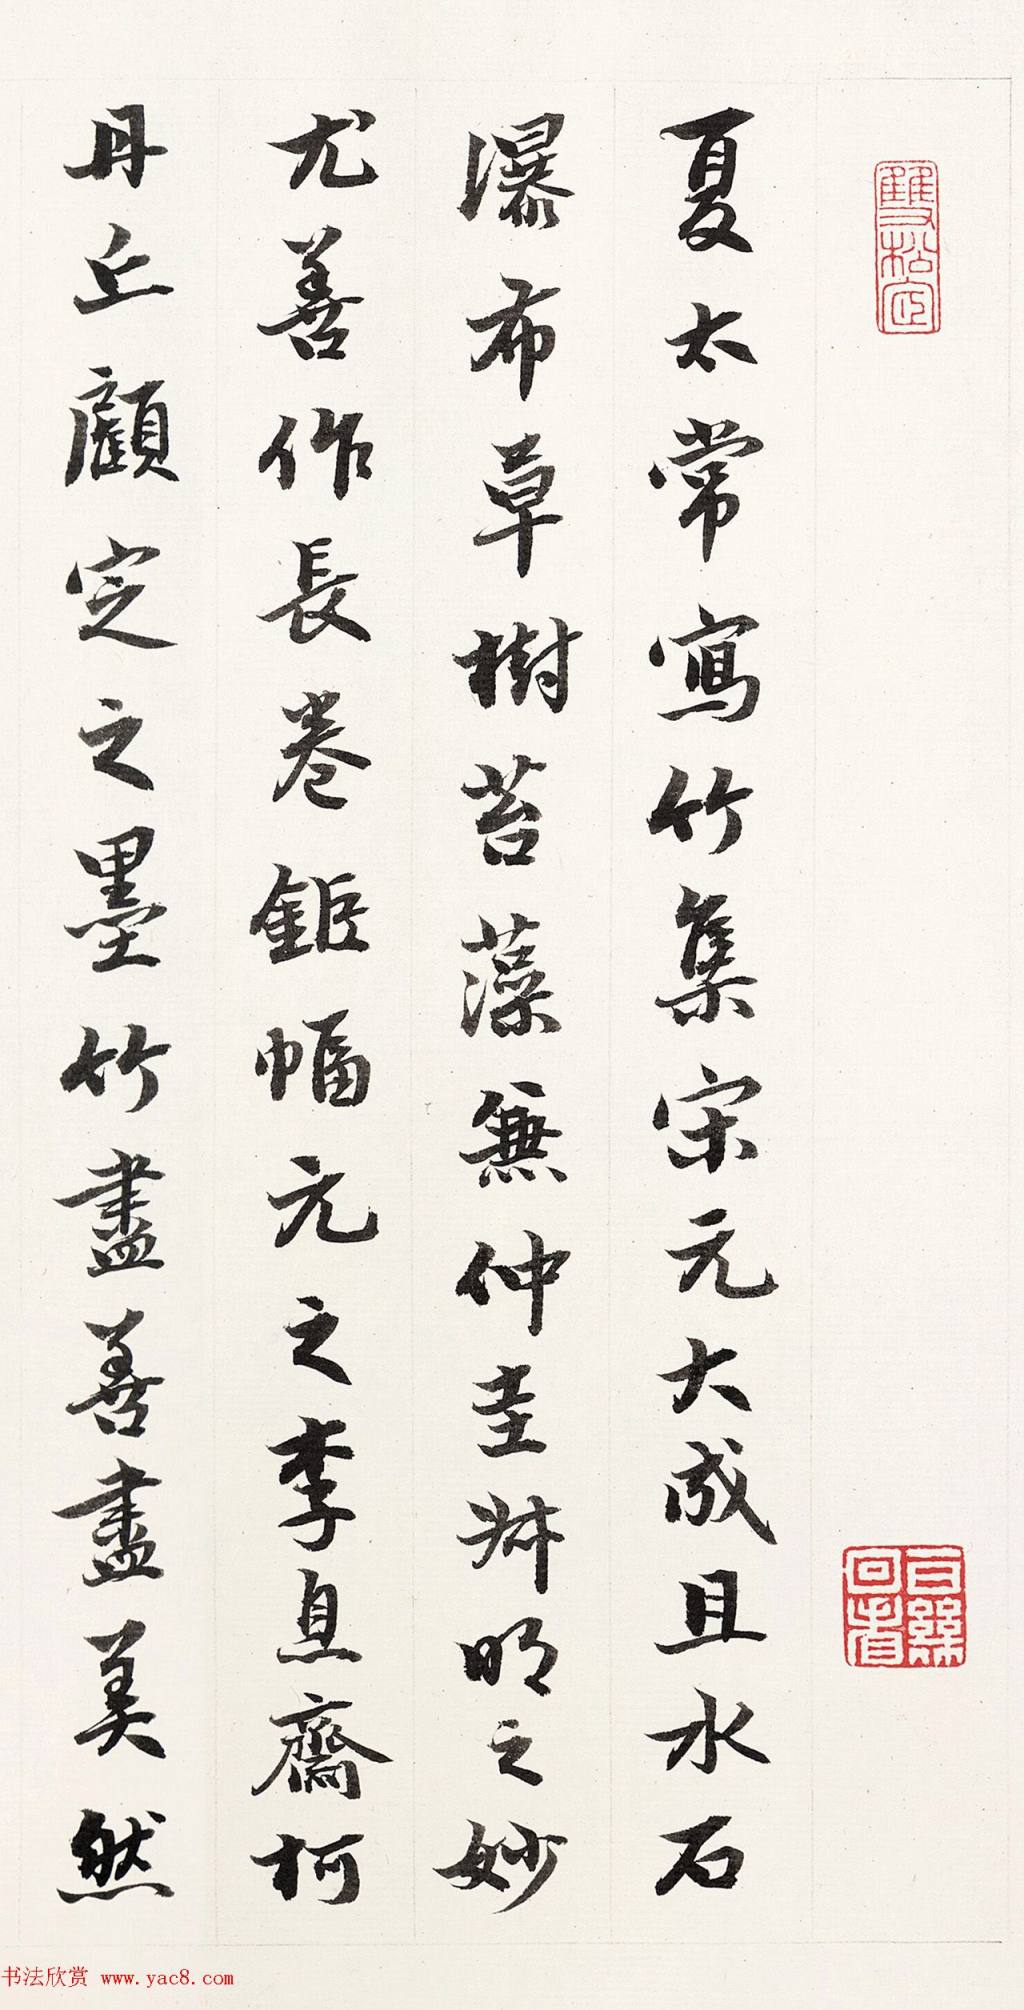 夏太常寫竹集宋元大成且水石
瀑布草樹苔藻兼仲圭叔明之妙
尤善作長卷鉅幅元之李息齋柯
丹丘顧定之墨竹盡善盡美然
书法欣赏 www.yac8.com